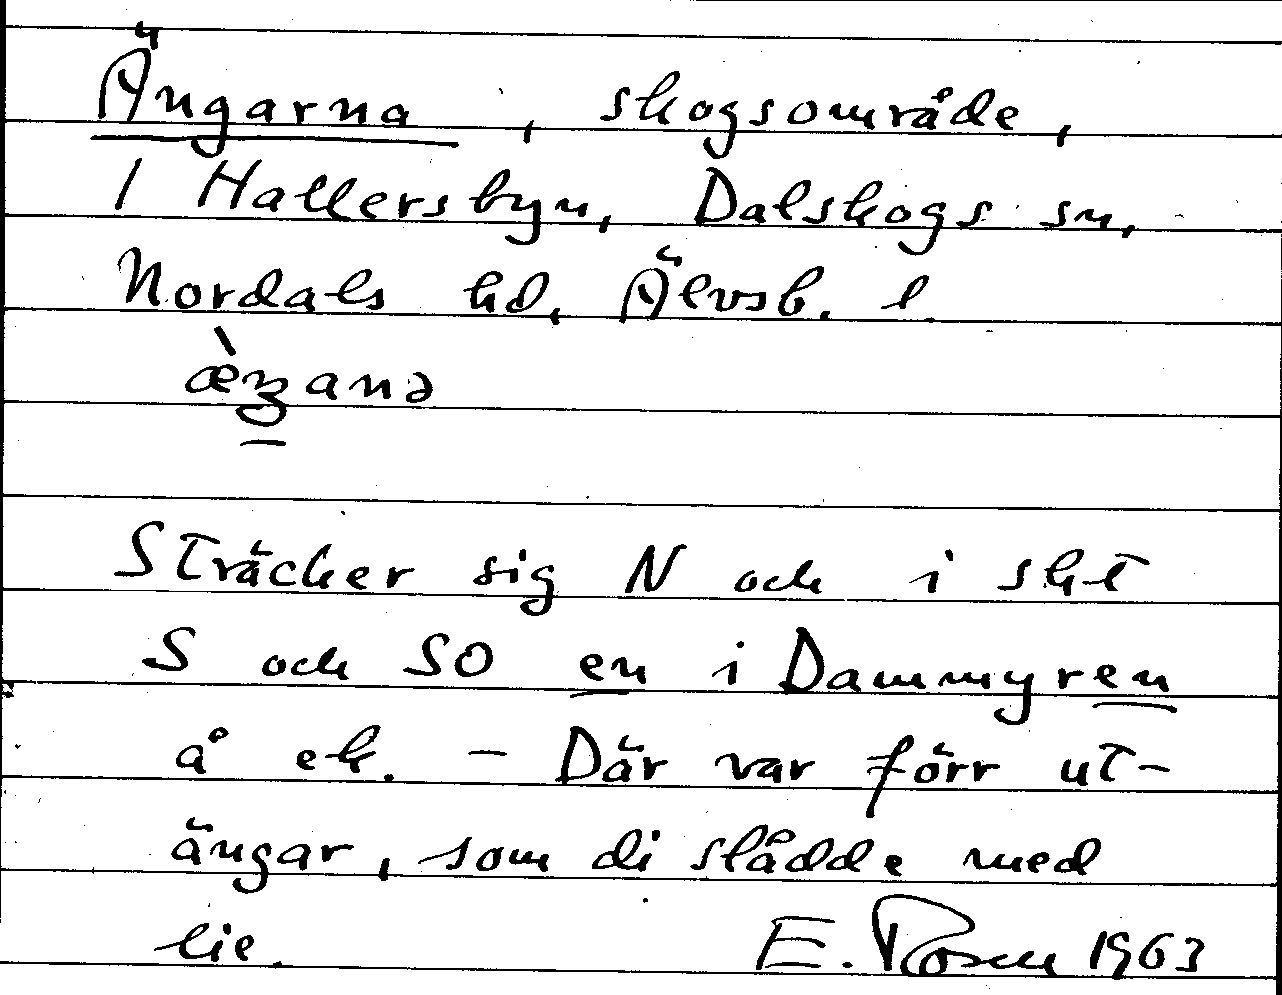 Ängarna , skogsområde,
I Hallersbyn, Dalskogs sn,
Nordals hd, Älvsb. l.
æ̀ŋanə
Sträcker sig N och i skt
S och SO en i Dammyren
å ek. – Där var förr ut-
ängar, som di slådde med
lie. E. Rosen 1963